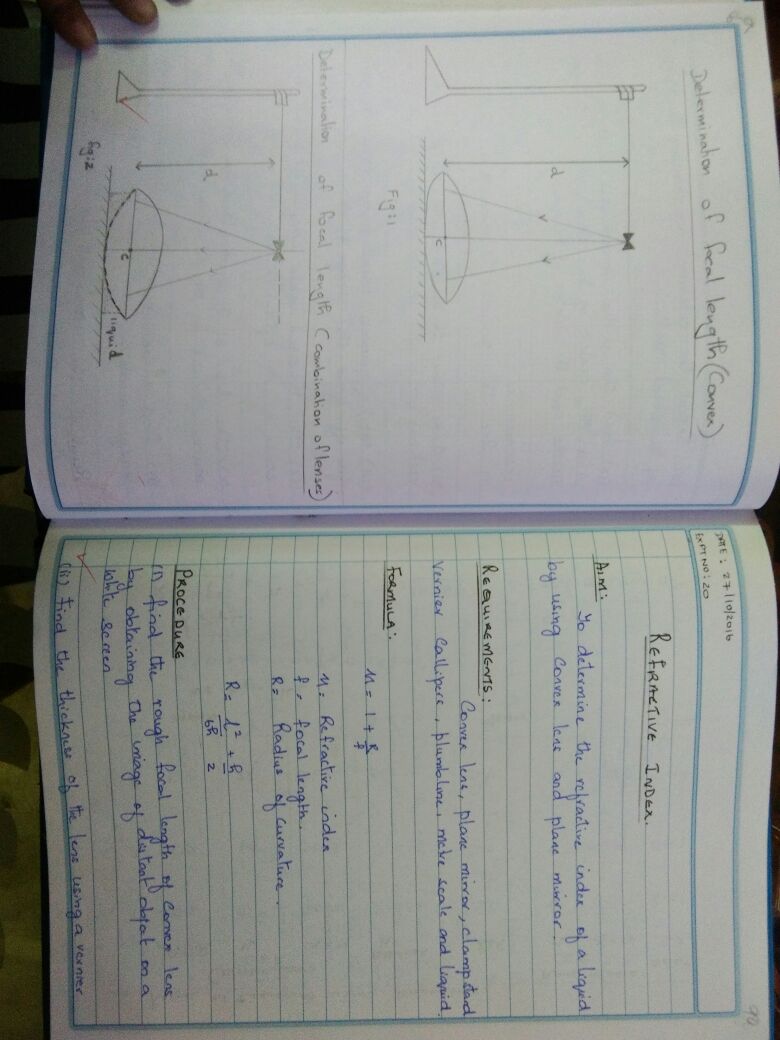 89
Determination of focal length (Convex)
d
C
Fig:1
Determination of focal length (combination of lenses)
d
C
liquid
fig:2
90
DATE : 27/10/2016
EXPT NO : 20
REFRACTIVE INDEX.
AIM:
To determine the refractive index of a liquid
by using Convex lens and plane mirror.
REQUIREMENTS:
Convex lens, plane mirror, clamp stand
Vernier Callipers, plumbline, metre scale and liquid.
FORMULA:
μ = 1 + R/f
μ = Refractive index
f = focal length.
R = Radius of curvature.
R = l²/6h + h/2
PROCEDURE
(i) find the rough focal length of convex lens
by obtaining the image of distant object on a
white screen
(ii) find the thickness of the lens using a vernier